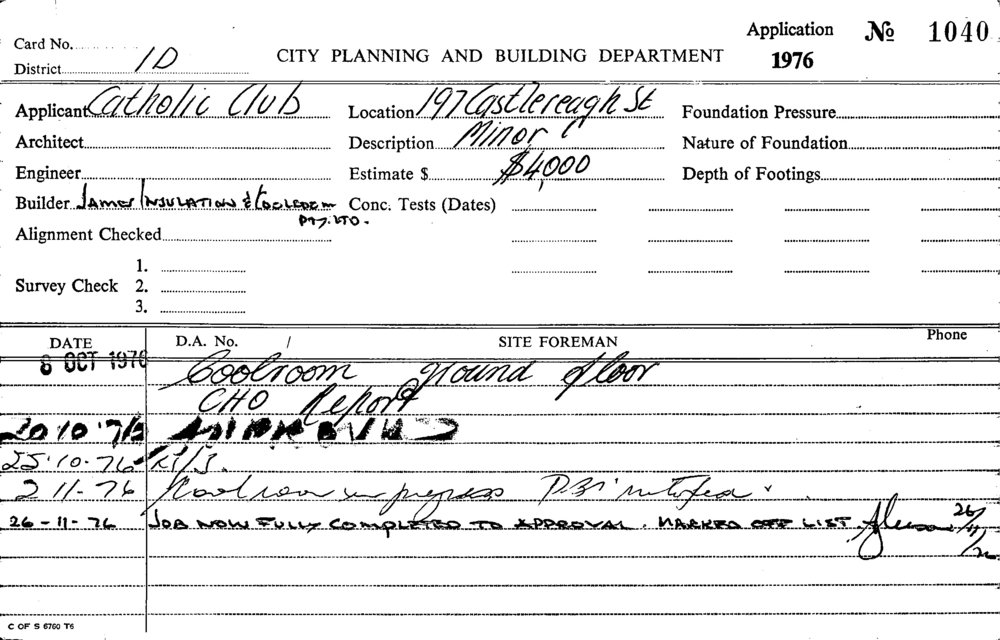 Application № 1040
Card No.
District 1D
CITY PLANNING AND BUILDING DEPARTMENT
1976
Applicant Catholic Club
Location 197 Castlereagh St
Foundation Pressure
Architect
Description Minor C
Nature of Foundation
Engineer
Estimate $ $4,000
Depth of Footings
Builder James Insulation & Coolroom
Pty. Ltd.
Conc. Tests (Dates)
Alignment Checked
1.
Survey Check 2.
3.
DATE
D.A. No. /
SITE FOREMAN
Phone
8 OCT 1976
Coolroom ground floor
CHO Report
20 10 '76 APPROVED
25·10·76
2 11-76 in progress
26-11-76 JOB NOW FULLY COMPLETED TO APPROVAL. MARKED OFF LIST 26/11/76
C OF S 6760 T6